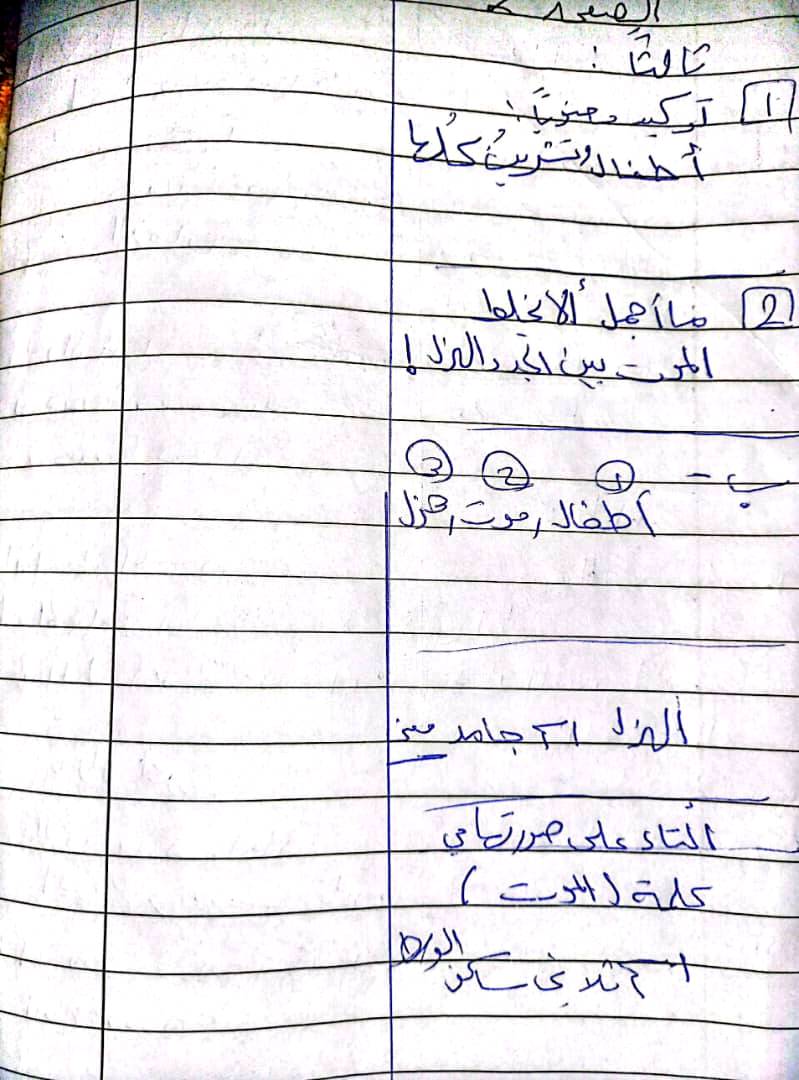 الصفحة
ثالثاً :
1 توكيد معنوياً :
أطفال تشرينُ كُلها
2 ما أجمل ألا نخلط
الموت بين الجد والهزل !
ب - 1 2 3
أطفال, موت, هزل
الهزل اسم جامد معنى
التاء على صورتها في
كلمة (الموت)
اسم ثلاثي ساكن الوسط